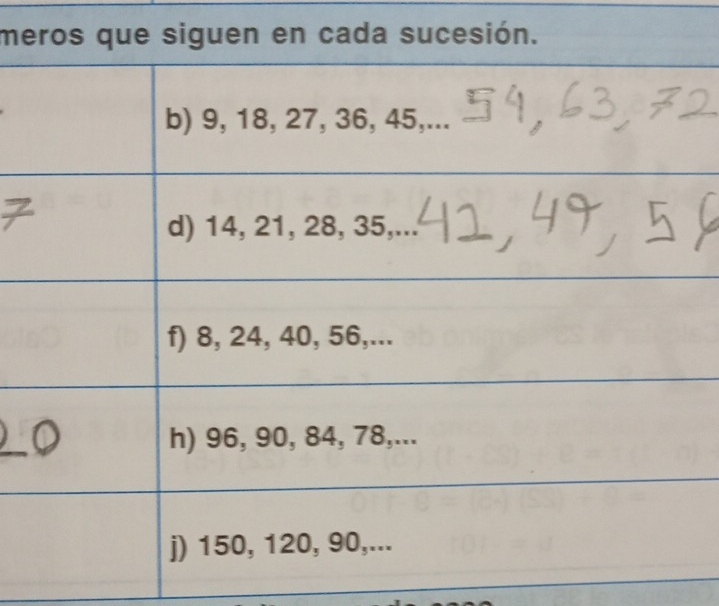 meros que siguen en cada sucesión.
b) 9, 18, 27, 36, 45,... 54, 63, 72
7
d) 14, 21, 28, 35,... 42, 49, 56
f) 8, 24, 40, 56,...
20
h) 96, 90, 84, 78,...
j) 150, 120, 90,...